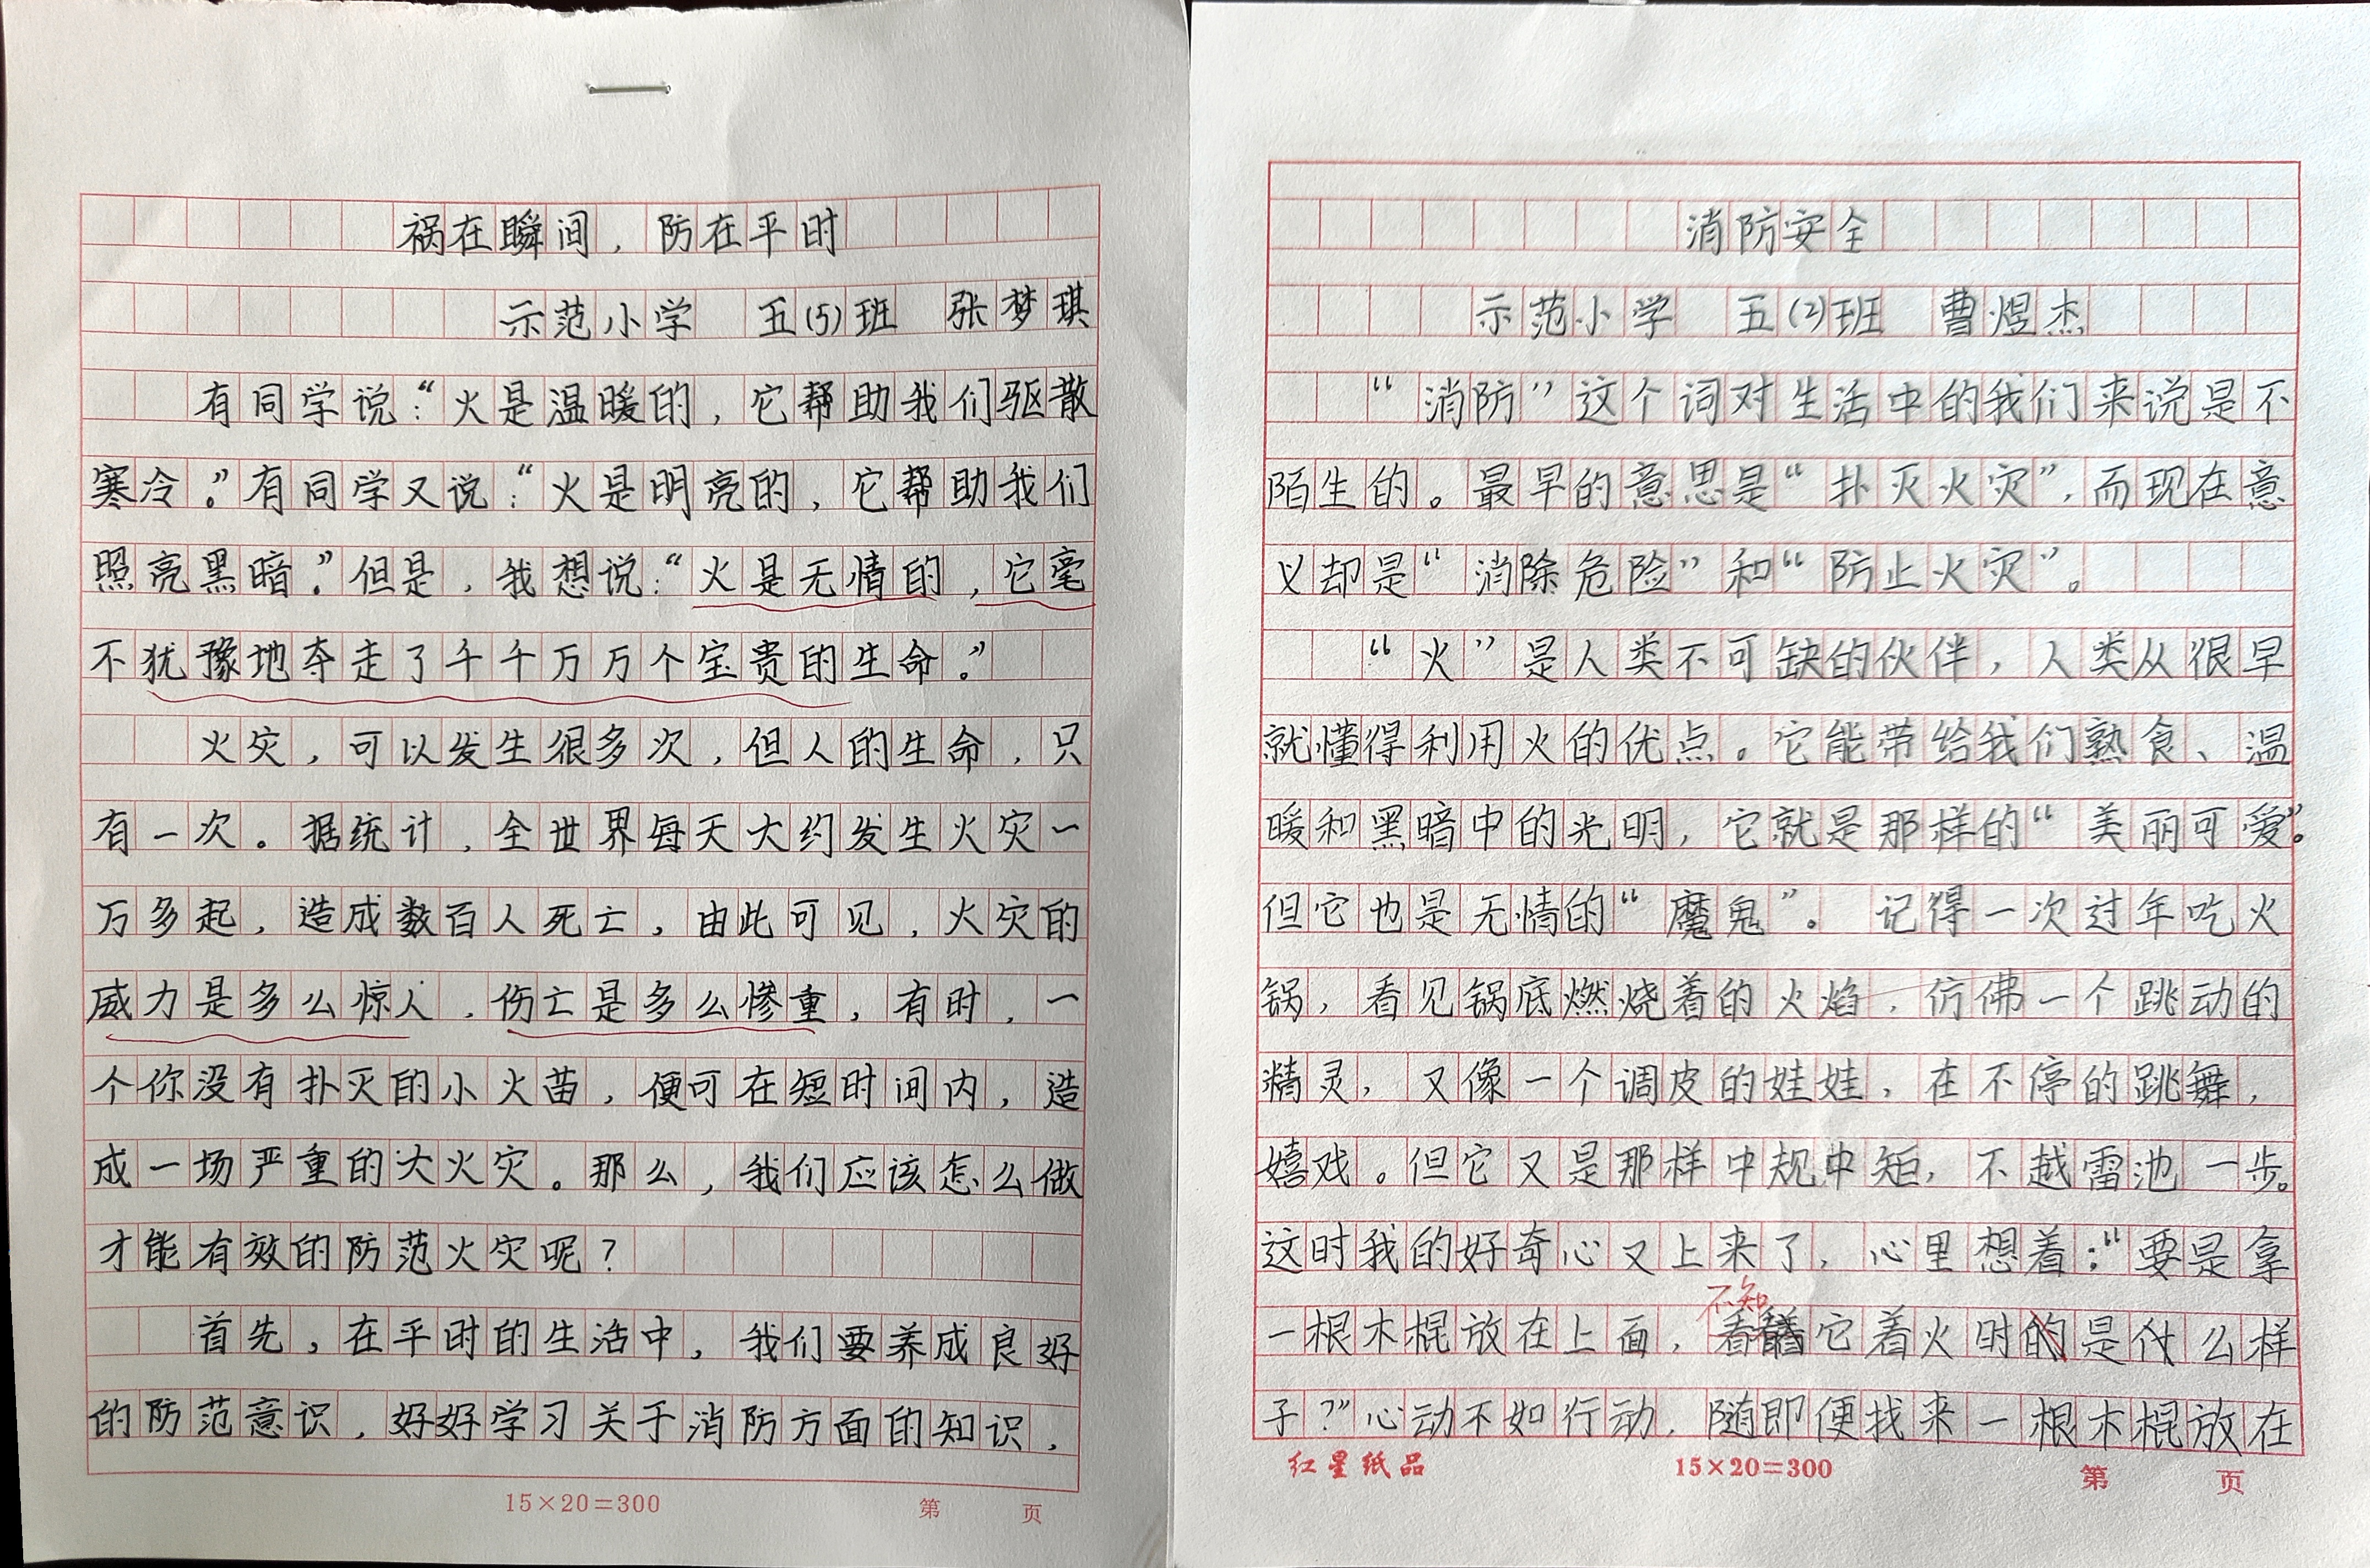 祸在瞬间，防在平时
示范小学 五(5)班 张梦琪
有同学说：“火是温暖的，它帮助我们驱散
寒冷。”有同学又说：“火是明亮的，它帮助我们
照亮黑暗。”但是，我想说：“火是无情的，它毫
不犹豫地夺走了千千万万个宝贵的生命。”
火灾，可以发生很多次，但人的生命，只
有一次。据统计，全世界每天大约发生火灾一
万多起，造成数百人死亡，由此可见，火灾的
威力是多么惊人，伤亡是多么惨重，有时，一
个你没有扑灭的小火苗，便可在短时间内，造
成一场严重的大火灾。那么，我们应该怎么做
才能有效的防范火灾呢？
首先，在平时的生活中，我们要养成良好
的防范意识，好好学习关于消防方面的知识，
15×20=300 第 页
消防安全
示范小学 五(2)班 曹煜杰
“消防”这个词对生活中的我们来说是不
陌生的。最早的意思是“扑灭火灾”，而现在意
义却是“消除危险”和“防止火灾”。
“火”是人类不可缺的伙伴，人类从很早
就懂得利用火的优点。它能带给我们熟食、温
暖和黑暗中的光明，它就是那样的“美丽可爱”。
但它也是无情的“魔鬼”。 记得一次过年吃火
锅，看见锅底燃烧着的火焰，仿佛一个跳动的
精灵，又像一个调皮的娃娃，在不停的跳舞，
嬉戏。但它又是那样中规中矩，不越雷池一步。
这时我的好奇心又上来了，心里想着：“要是拿
不知
一根木棍放在上面，它着火时的是什么样
子？”心动不如行动，随即便找来一根木棍放在
红星纸品 15×20=300 第 页